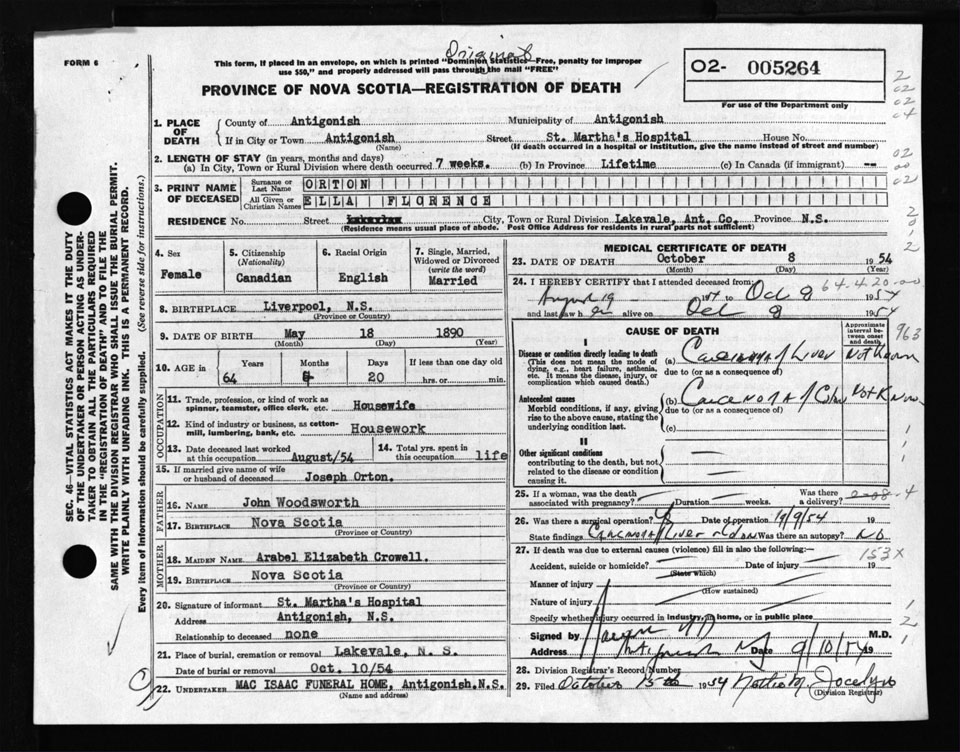 FORM 6
Original
This form, if placed in an envelope, on which is printed "Dominion Statistics—Free, penalty for improper
use $50," and properly addressed will pass through the mail "FREE"
PROVINCE OF NOVA SCOTIA—REGISTRATION OF DEATH
O2- 005264
For use of the Department only
1. PLACE OF DEATH
County of Antigonish Municipality of Antigonish
If in City or Town Antigonish Street St. Martha's Hospital House No.
(Name) (If death occurred in a hospital or institution, give the name instead of street and number)
2. LENGTH OF STAY (in years, months and days)
(a) In City, Town or Rural Division where death occurred 7 weeks. (b) In Province Lifetime (c) In Canada (if immigrant) --
3. PRINT NAME OF DECEASED
Surname or Last Name ORTON
All Given or Christian Names ELLA FLORENCE
RESIDENCE No. Street City, Town or Rural Division Lakevale, Ant. Co. Province N.S.
(Residence means usual place of abode. Post Office Address for residents in rural parts not sufficient)
4. Sex Female
5. Citizenship (Nationality) Canadian
6. Racial Origin English
7. Single, Married, Widowed or Divorced (write the word) Married
8. BIRTHPLACE Liverpool, N.S.
(Province or Country)
9. DATE OF BIRTH May 18 1890
(Month) (Day) (Year)
10. AGE in Years Months Days If less than one day old
64 20 hrs. or min.
OCCUPATION
11. Trade, profession, or kind of work as spinner, teamster, office clerk, etc. Housewife
12. Kind of industry or business, as cotton-mill, lumbering, bank, etc. Housework
13. Date deceased last worked at this occupation August/54
14. Total yrs. spent in this occupation life
15. If married give name of wife or husband of deceased Joseph Orton.
FATHER
16. NAME John Woodsworth
17. BIRTHPLACE Nova Scotia
(Province or Country)
MOTHER
18. MAIDEN NAME Arabel Elizabeth Crowell.
19. BIRTHPLACE Nova Scotia
(Province or Country)
20. Signature of informant St. Martha's Hospital
Address Antigonish, N.S.
Relationship to deceased none
21. Place of burial, cremation or removal Lakevale, N. S.
Date of burial or removal Oct. 10/54
22. UNDERTAKER MAC ISAAC FUNERAL HOME, Antigonish.N.S.
(Name and address)
MEDICAL CERTIFICATE OF DEATH
23. DATE OF DEATH October 8 1954
(Month) (Day) (Year)
24. I HEREBY CERTIFY that I attended deceased from:
64-4-20-00
August 19 1954 to Oct 9 1954
and last saw h er alive on Oct 9 1954
CAUSE OF DEATH
Approximate interval between onset and death
963
I
Disease or condition directly leading to death
(This does not mean the mode of dying, e.g., heart failure, asthenia, etc. It means the disease, injury, or complication which caused death.)
(a) Carcinoma of Liver Not Known
due to (or as a consequence of)
Antecedent causes
Morbid conditions, if any, giving rise to the above cause, stating the underlying condition last.
(b) Carcinoma of Colon Not Known
due to (or as a consequence of)
(c)
II
Other significant conditions
contributing to the death, but not related to the disease or condition causing it.
25. If a woman, was the death associated with pregnancy? Duration weeks. Was there a delivery?
26. Was there a surgical operation? Date of operation 19/9/54 19
State findings Carcinoma of Liver & Colon Was there an autopsy? NO
27. If death was due to external causes (violence) fill in also the following:—
153X
Accident, suicide or homicide? Date of injury 19
(State which)
Manner of injury
(How sustained)
Nature of injury
Specify whether injury occurred in industry, in home, or in public place
Signed by M.D.
Address Antigonish NS Date 9/10/54 19
28. Division Registrar's Record Number
29. Filed October 15th 1954 Nettie M. Jocelyn
(Division Registrar)
SEC. 46—VITAL STATISTICS ACT MAKES IT THE DUTY
OF THE UNDERTAKER OR PERSON ACTING AS UNDER-
TAKER TO OBTAIN ALL THE PARTICULARS REQUIRED
IN THE "REGISTRATION OF DEATH" AND TO FILE THE
SAME WITH THE DIVISION REGISTRAR WHO SHALL ISSUE THE BURIAL PERMIT.
WRITE PLAINLY WITH UNFADING INK. THIS IS A PERMANENT RECORD.
Every item of information should be carefully supplied. (See reverse side for instructions.)